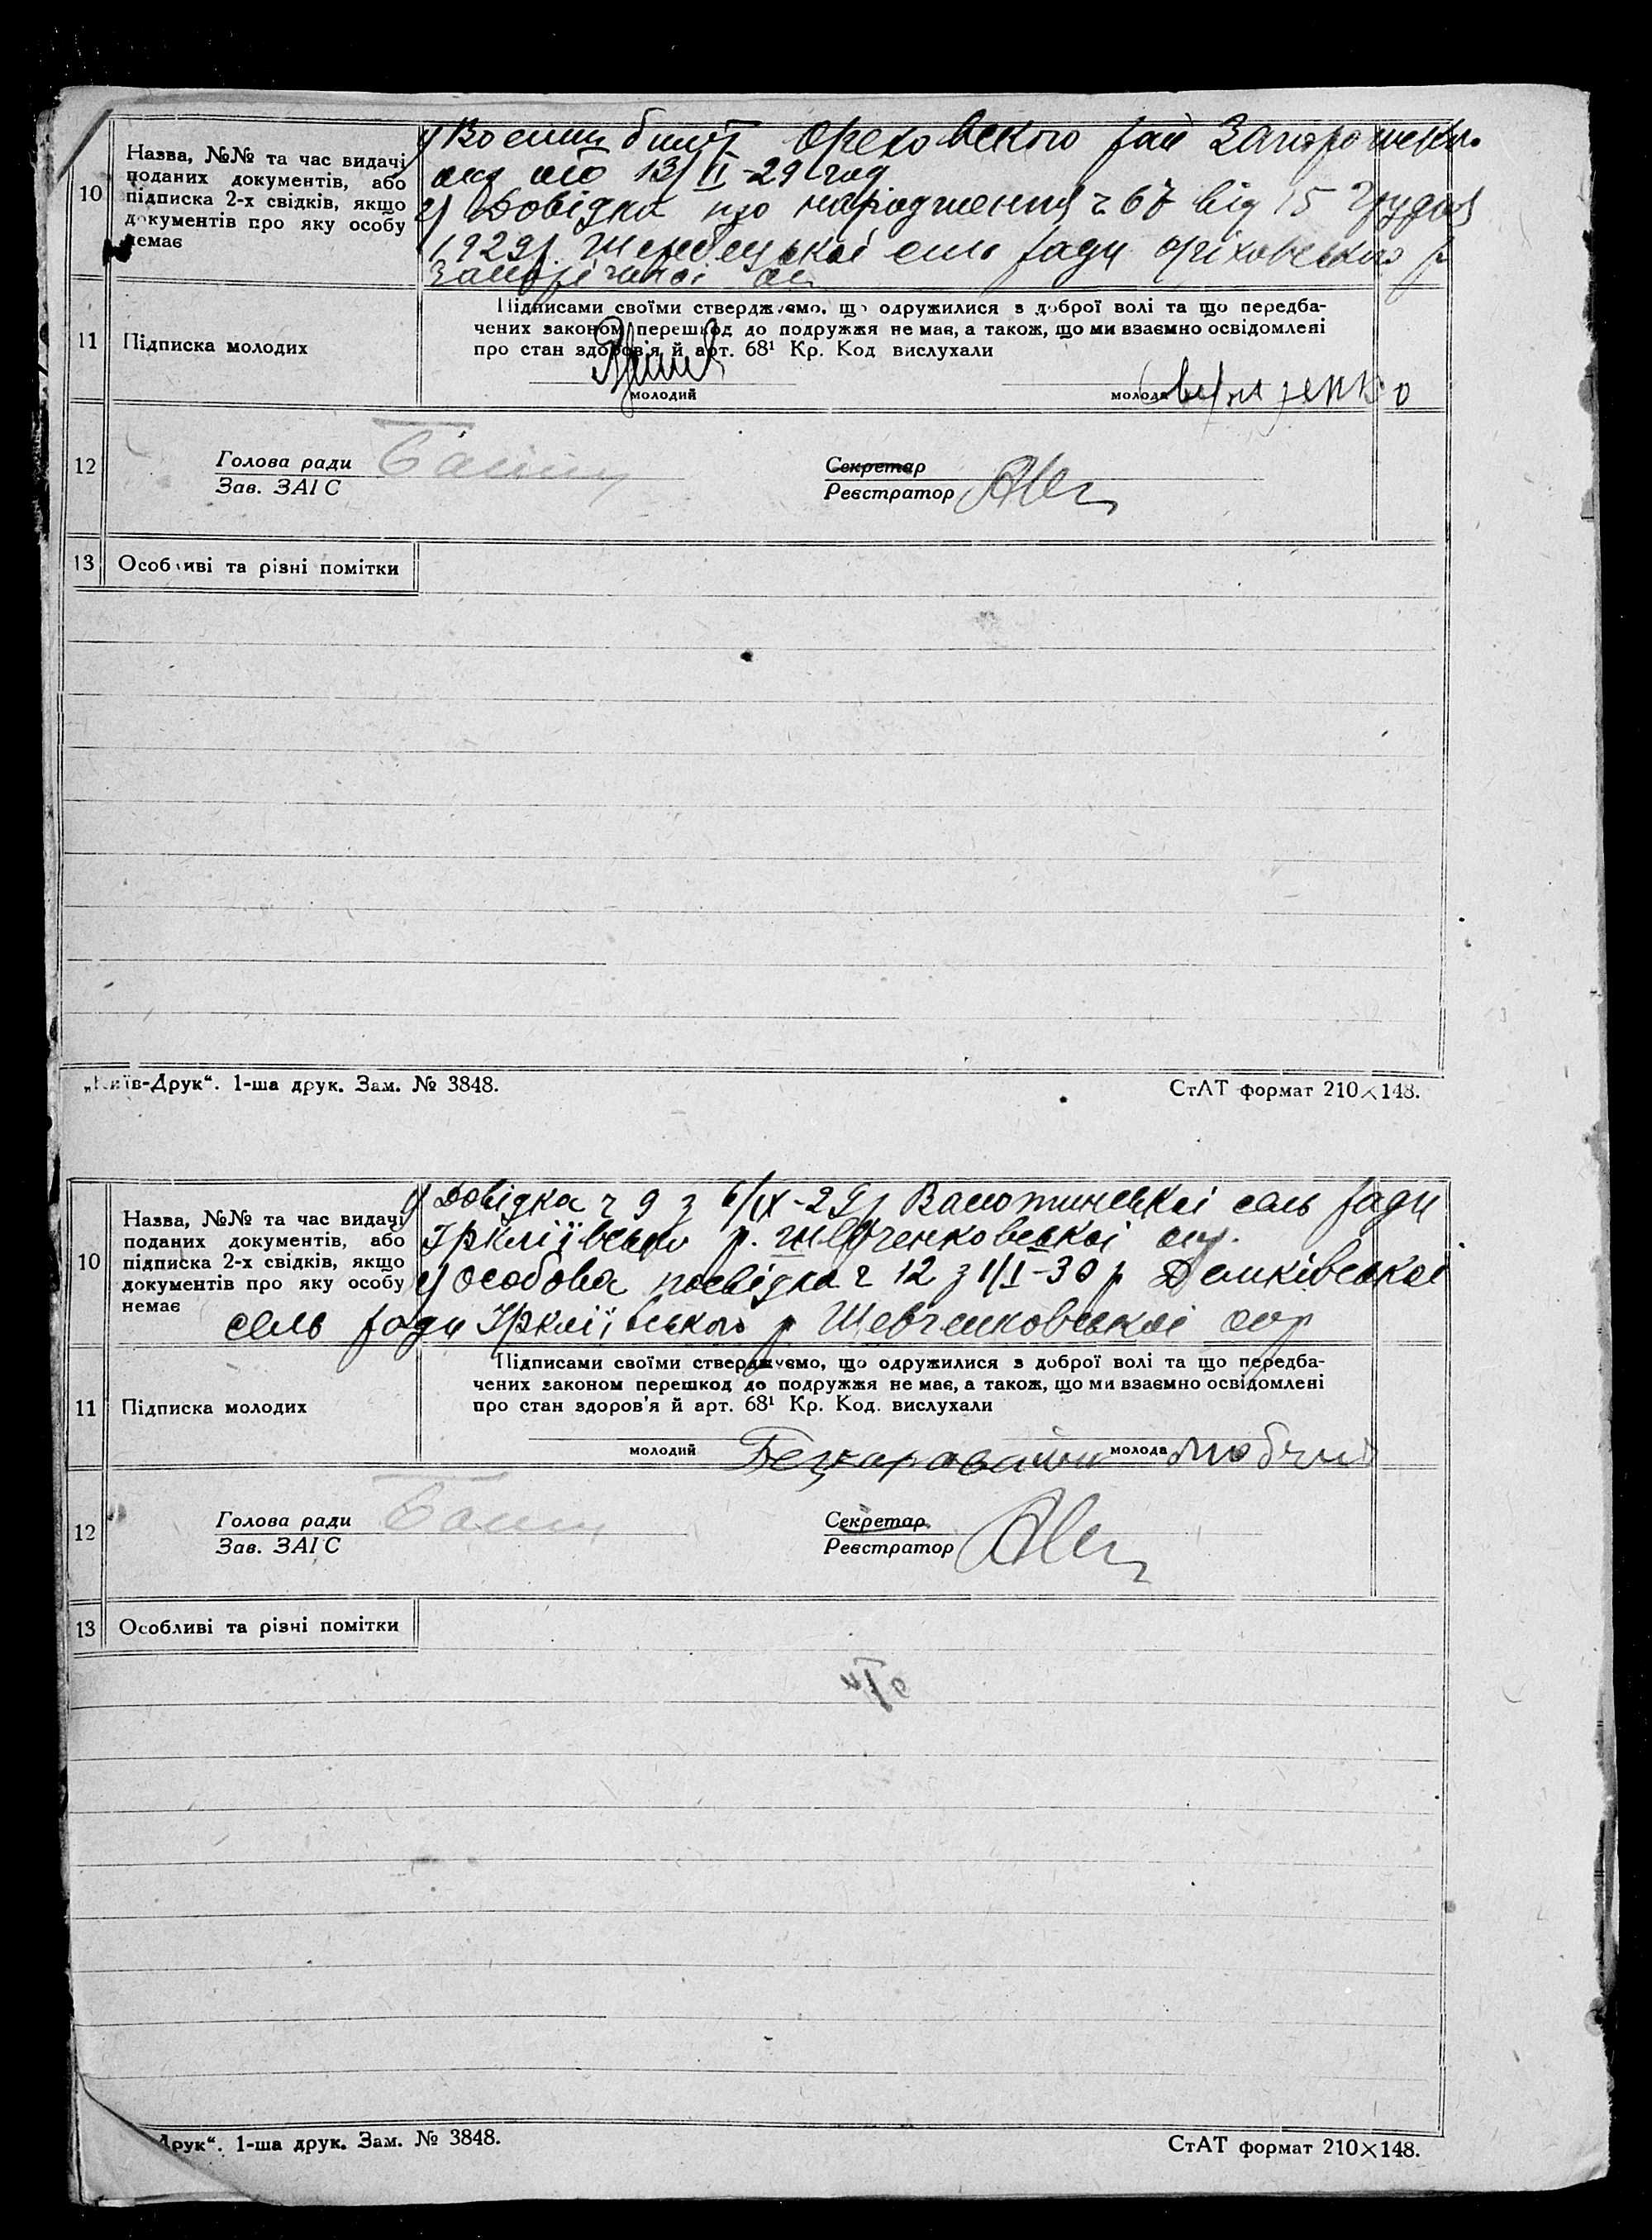 10
Назва, №№ та час видачі
поданих документів, або
підписка 2-х свідків, якщо
документів про яку особу
немає
1) Воєнни билет Ореховского рай Запорожск.
окр 13/II-29 год
2) Довідка про народження ч 67 від 15 Грудня
1929р. Жеребецької сель ради Оріховського р
11
Підписка молодих
Підписами своїми стверджуємо, що одружилися з доброї волі та що передба-
чених законом перешкод до подружжя не має, а також, що ми взаємно освідомлені
про стан здоров'я й арт. 68¹ Кр. Код вислухали
молодий
молода
12
Голова ради
Зав. ЗАІС
Секретар
Реєстратор
13
Особливі та різні помітки
„Київ-Друк“. 1-ша друк. Зам. № 3848.
СтАТ формат 210×148.
10
Назва, №№ та час видачі
поданих документів, або
підписка 2-х свідків, якщо
документів про яку особу
немає
1) Довідка ч 9 з 6/IX-29р сель ради
Іркліївського р. Шевченковської окр.
2) Особова посвідка ч 12 з 1/I-30 р Демківської
сель ради Іркліївського р Шевченковської окр
11
Підписка молодих
Підписами своїми стверджуємо, що одружилися з доброї волі та що передба-
чених законом перешкод до подружжя не має, а також, що ми взаємно освідомлені
про стан здоров'я й арт. 68¹ Кр. Код. вислухали
молодий
молода
12
Голова ради
Зав. ЗАІС
Секретар
Реєстратор
13
Особливі та різні помітки
Друк“. 1-ша друк. Зам. № 3848.
СтАТ формат 210×148.